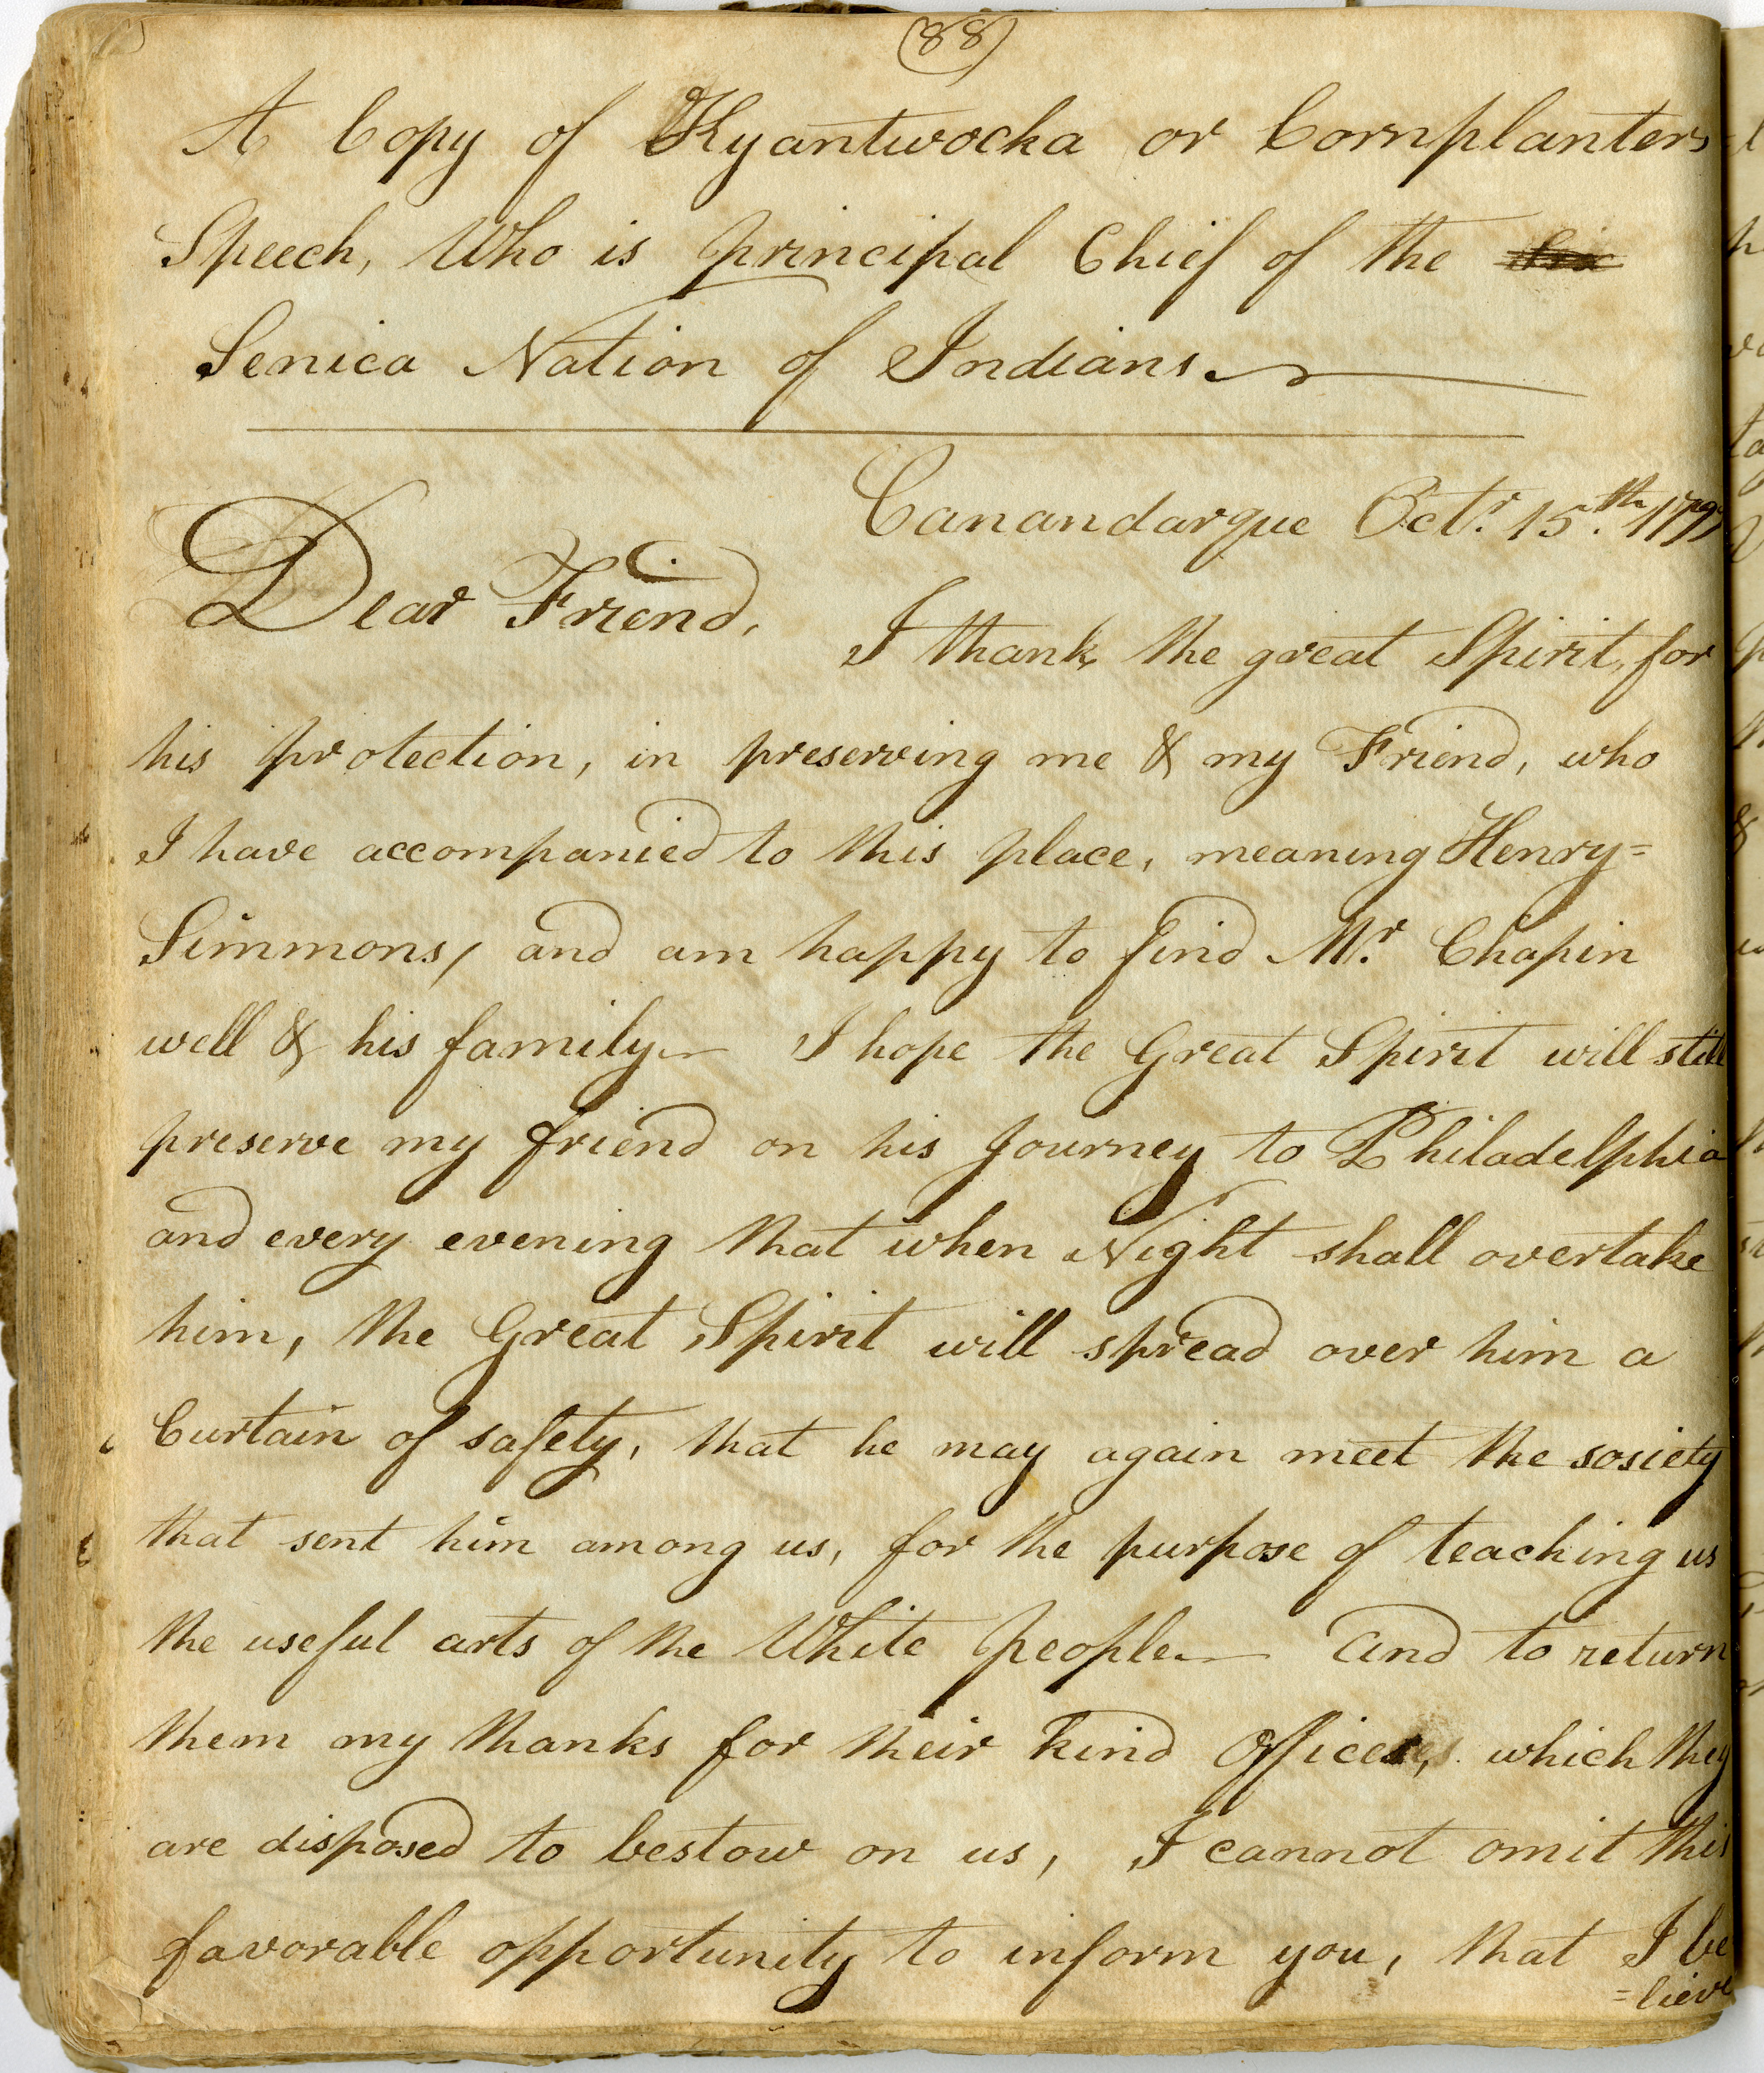 (88)
A Copy of Kyantwocka or Cornplanters
Speech, Who is principal Chief of the
Senica Nation of Indians.
Canandarque Octr. 15th. 1799
Dear Friend,
I thank the great Spirit, for
his protection, in preserving me & my Friend, who
I have accompanied to this place, meaning Henry=
Simmons, and am happy to find Mr. Chapin
well & his family— I hope the Great Spirit will still
preserve my friend on his Journey to Philadelphia
and every evening that when Night shall overtake
him, the Great Spirit will spread over him a
Curtain of safety, that he may again meet the sosiety
that sent him among us, for the purpose of teaching us
the useful arts of the White people— and to return
them my thanks for their kind Offices, which they
are disposed to bestow on us, I cannot omit this
favorable opportunity to inform you, that I be
=lieve